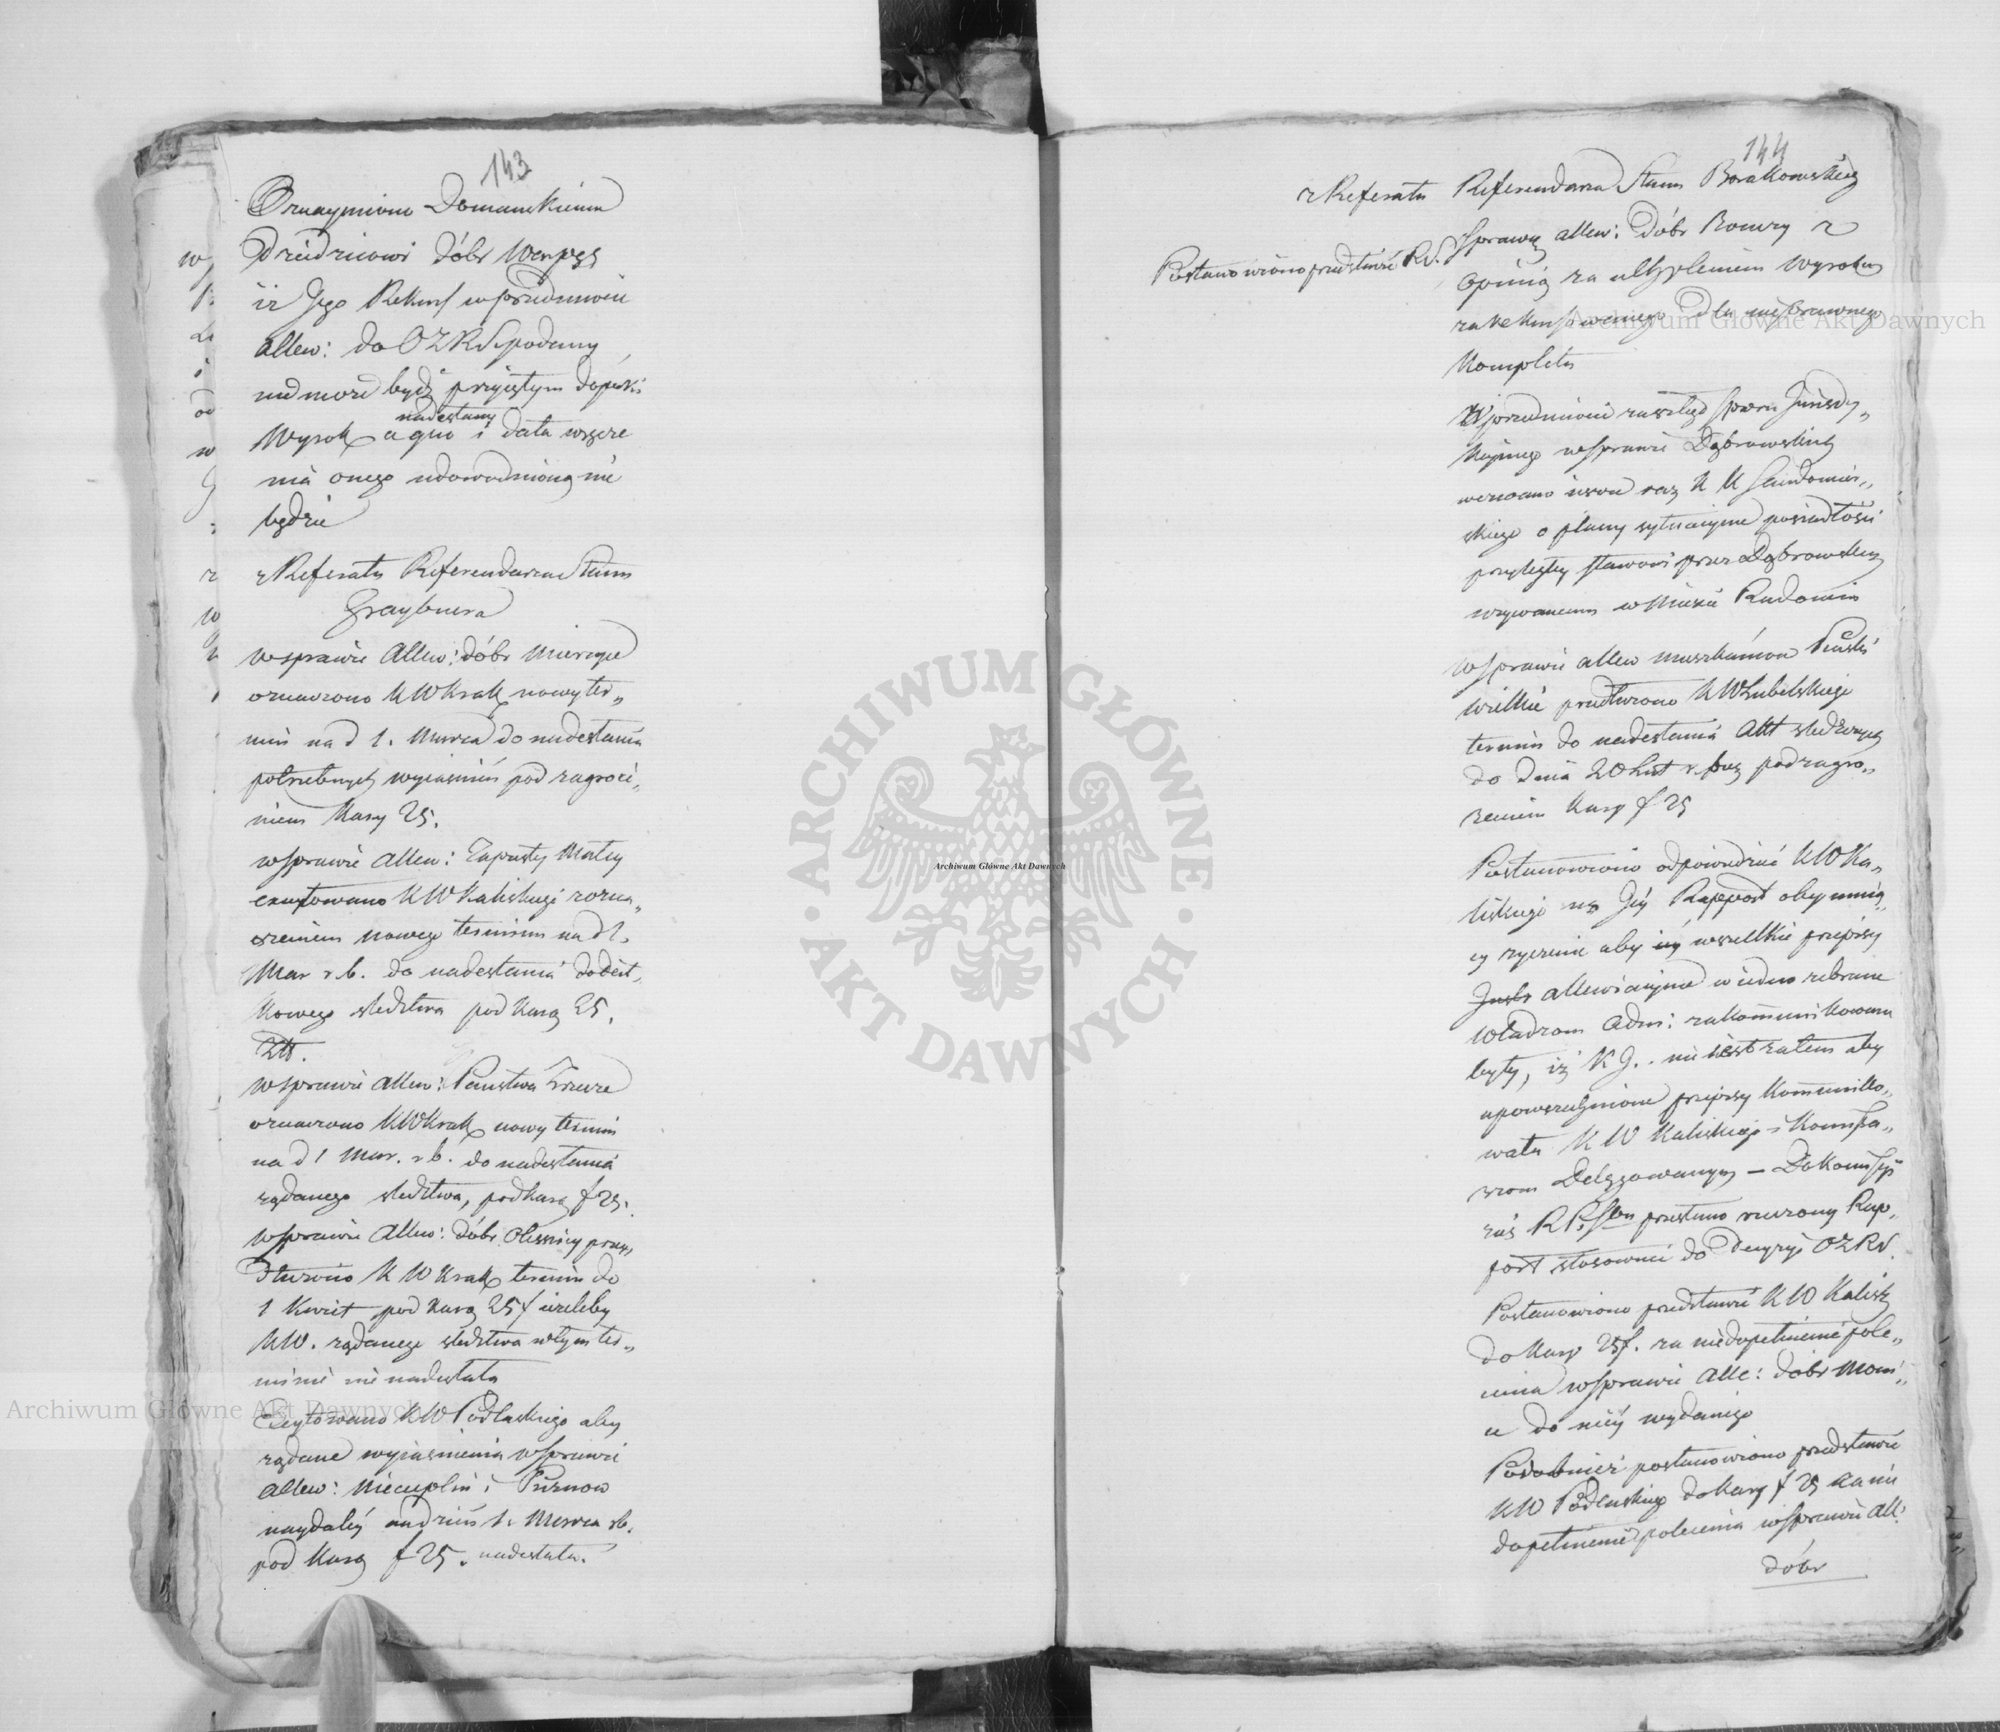 143
Oznaymiono Domanskiemu
Dziedzicowi dóbr
iż Jego Rekurs w przedmiocie
allew: do OZRS podany
nie może bydź przyiętym dopóki
nadesłany
Wyrok a quo i data wręcze
nia onego udowodnioną nie
będzie
z Referatu Referendarza Stanu
Graybnera
w sprawie Allew: dóbr
oznaczono KW Krak nowy ter„
min na d 1. Marca do nadesłania
potrzebnych wyiaśnień pod zagroże„
niem Kary 25.
w sprawie Allew: Zapusty
excytowano KW Kaliskiego z ozna„
czeniem nowego terminu na d 1.
Mar r.b. do nadesłania dodat„
kowego śledztwa pod karą 25.
Złt.
w sprawie Allew: Państwa
oznaczono KW Krak nowy termin
na d 1 Mar. r b. do nadesłania
żądanego śledztwa, pod karą f 25.
w sprawie Allew: dóbr Olesnicy prze„
dłużono KW Krak termin do
1 Kwiet pod karą 25 f ieżeliby
KW. żądanego śledztwa w tym ter„
minie nie nadesłała
Excytowano KW Podlaskiego aby
żądane wyiaśnienia w sprawie
Allew: i
naydaléy na dzień 1. Marca rb.
pod karą f 25. nadesłała.
144
z Referatu Referendarza Stanu
Postanowiono przedstawić RS.
Sprawę allew: dóbr z
opinią za uchyleniem wyroku
zarekursowanego dla nieprawnego
Kompletu
W przedmiocie zaszłego sporu Jurisdy„
kcyinego w sprawie Dąbrowskich
wezwano ieszcze raz K W Sandomier„
skiego o plany sytuacyine posiadłości
przyległey stawowi przez Dąbrowskich
używanemu w Mieście Radomiu
w sprawie allew mieszkańców
wielkie przedłużono KW Lubelskiego
termin do nadesłania Akt śledczych
do dnia 20 Lut r. pod zagro„
żeniem kary f 25
Postanowiono odpowiedzieć KW Ka„
liskiego na Jéy Rapport obeymuią„
cy życzenie aby iéy wszelkie przepisy
allewiacyine w iedno zebrane
Władzom Adm: zakomunikowane
były, iż K J.. nie iest zatem aby
upowszechnione przepisy Kommuniko„
wała KW Kaliskiego i Kommissa„
rzom Delegowanym — Do Kommissyi
zaś R P. Sbu przesłano rzeczony Rap„
port stosownie do decyzyi OZRS.
Postanowiono przedstawić KW Kalisk
do kary 25 f. za niedopełnienie pole„
cenia w sprawie Alle: dóbr
do niéy wydanego
Podobnież postanowiono przedstawić
KW Podlaskiego do kary f 25 za nie
dopełnienie polecenia w sprawie All:
dóbr
ARCHIWUM GŁÓWNE AKT DAWNYCH
Archiwum Główne Akt Dawnych
Archiwum Główne Akt Dawnych
Archiwum Główne Akt Dawnych